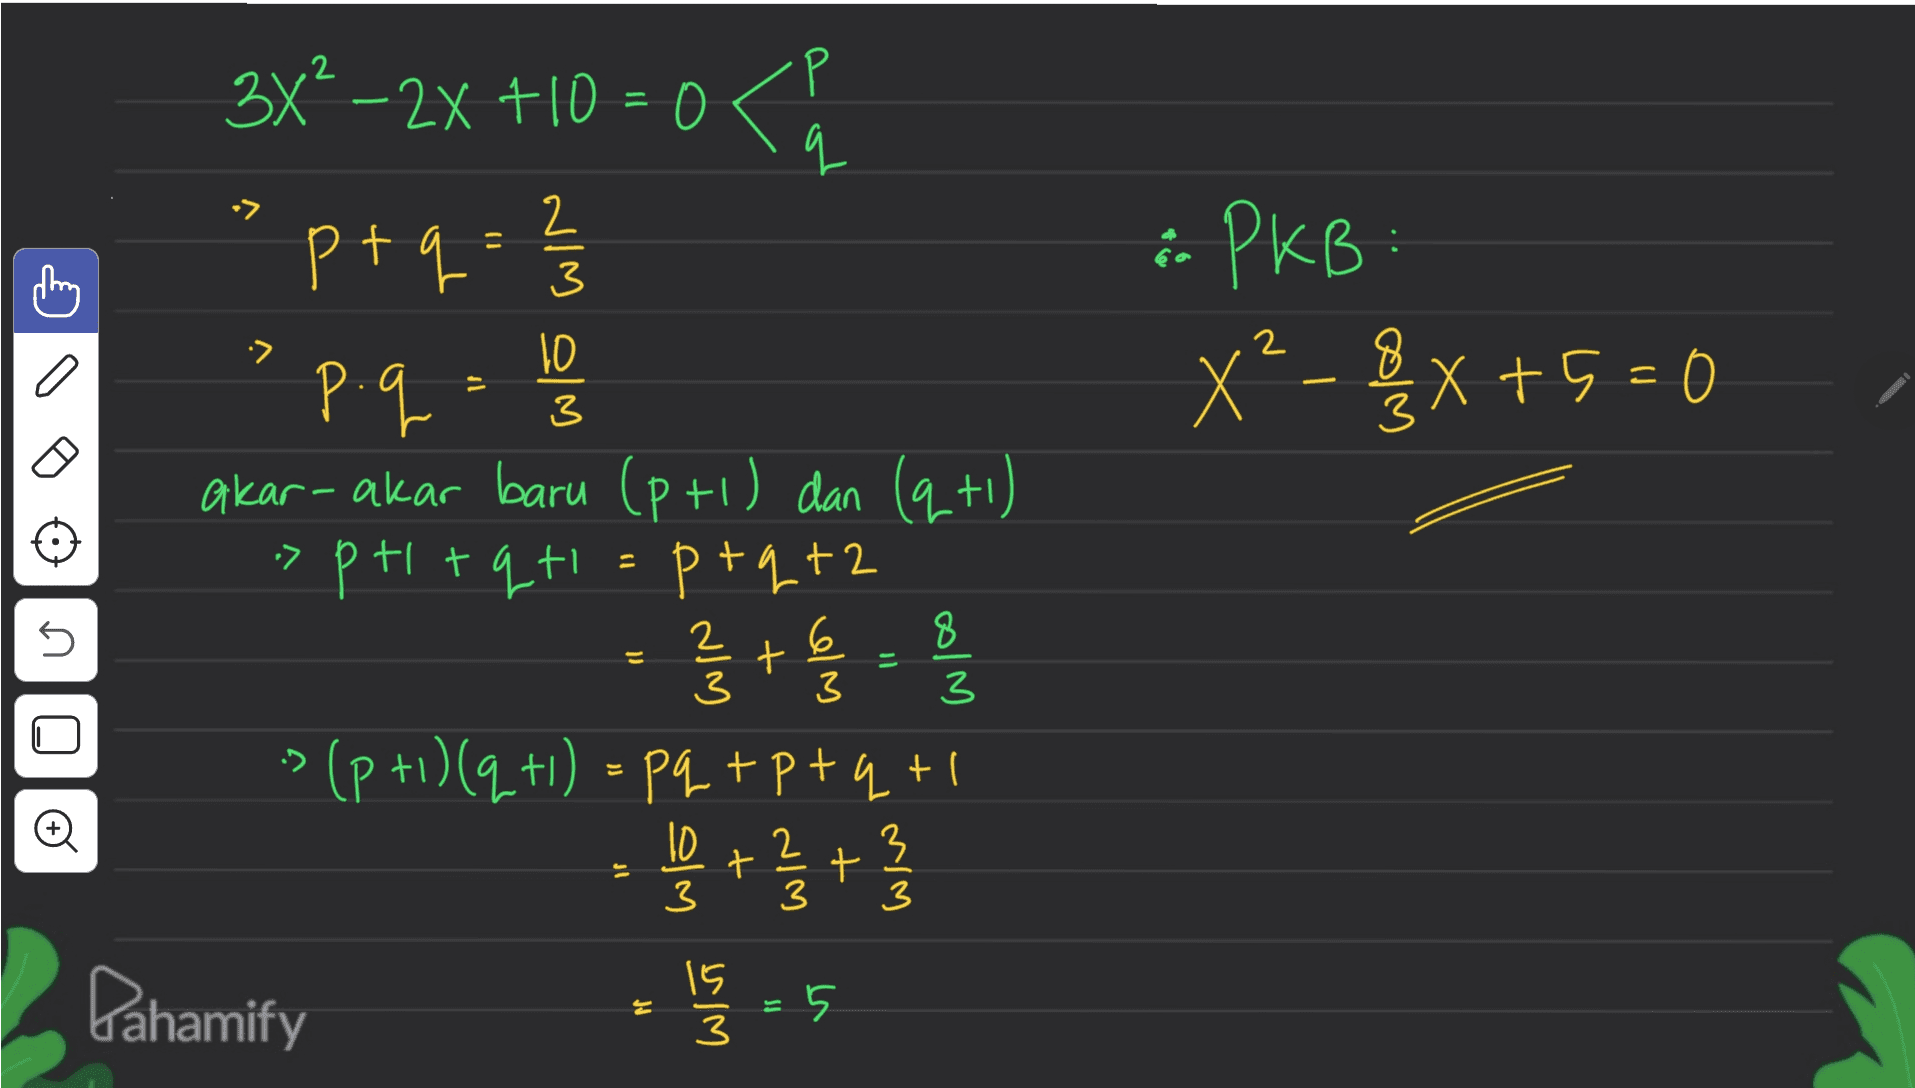 3x² - 2x + 10 = 0 < p
q
·> p + q = 2/3
·> p·q = 10/3
akar-akar baru (p+1) dan (q+1)
·> p+1 + q+1 = p+q+2
= 2/3 + 6/3 = 8/3
·> (p+1)(q+1) = pq + p + q + 1
= 10/3 + 2/3 + 3/3
= 15/3 = 5
∴ PKB:
x² - 8/3 x + 5 = 0
Pahamify